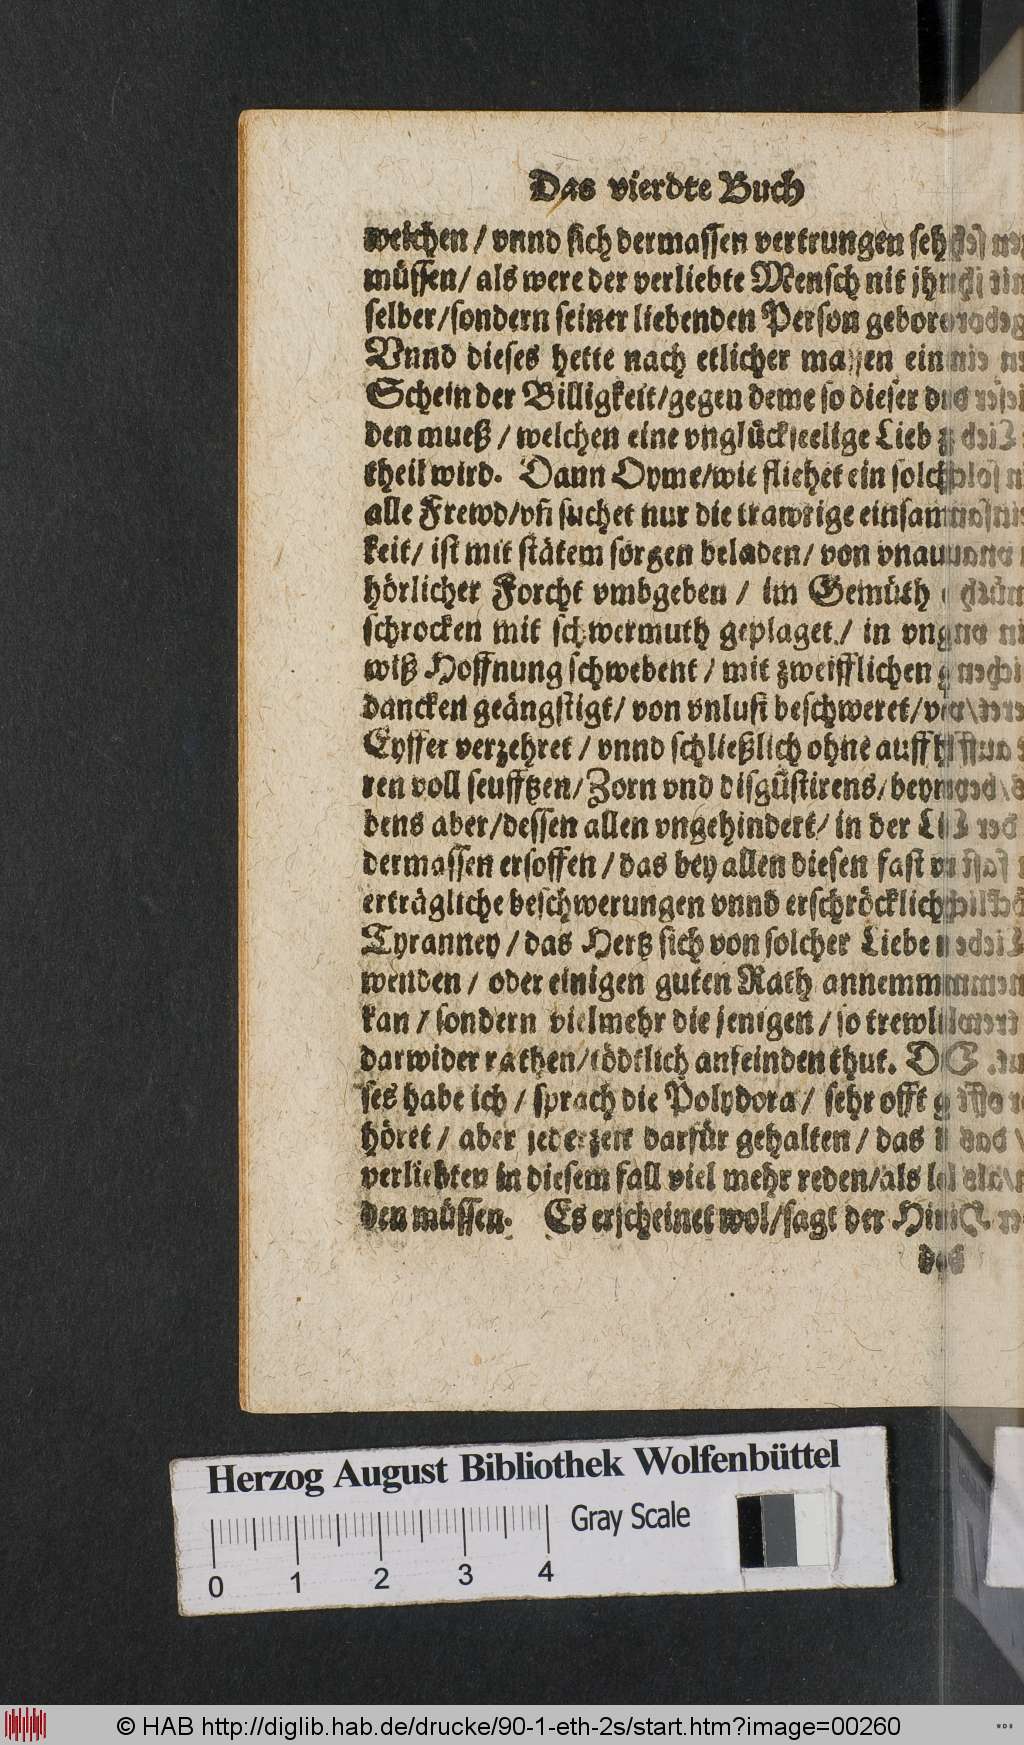 Das vierdte Buch
weichen / vnnd sich dermassen vertrungen seh
müssen / als were der verliebte Mensch nit jhm
selber / sondern seiner liebenden Person gebor
Vnnd dieses hette nach etlicher massen ein
Schein der Billigkeit / gegen deme so dieser
den mueß / welchen eine vnglückseelige Lieb
theil wird. Dann Oyme / wie fliehet ein solch
alle Frewd / vñ suchet nur die trawrige einsam
keit / ist mit stätem sorgen beladen / von vnauff
hörlicher Forcht vmbgeben / im Gemüth
schrocken mit schwermuth geplaget / in vnge
wiß Hoffnung schwebent / mit zweifflichen g
dancken geängstigt / von vnlust beschweret / von
Eyffer verzehret / vnnd schließlich ohne auffh
ren voll seufftzen / Zorn vnd disgüstirens / bey
dens aber / dessen allen vngehindert / in der Li
dermassen ersoffen / das bey allen diesen fast
erträgliche beschwerungen vnnd erschröcklich
Tyranney / das Hertz sich von solcher Liebe
wenden / oder einigen guten Rath annemm
kan / sondern vielmehr die jenigen / so trewli
darwider rathen / tödtlich anfeinden thut. D
ses habe ich / sprach die Polydora / sehr offt g
höret / aber jederzeit darfür gehalten / das
verliebten in diesem fall viel mehr reden / als lei
den müssen. Es erscheinet wol / sagt der Hi
Herzog August Bibliothek Wolfenbüttel
Gray Scale
0 1 2 3 4
© HAB http://diglib.hab.de/drucke/90-1-eth-2s/start.htm?image=00260